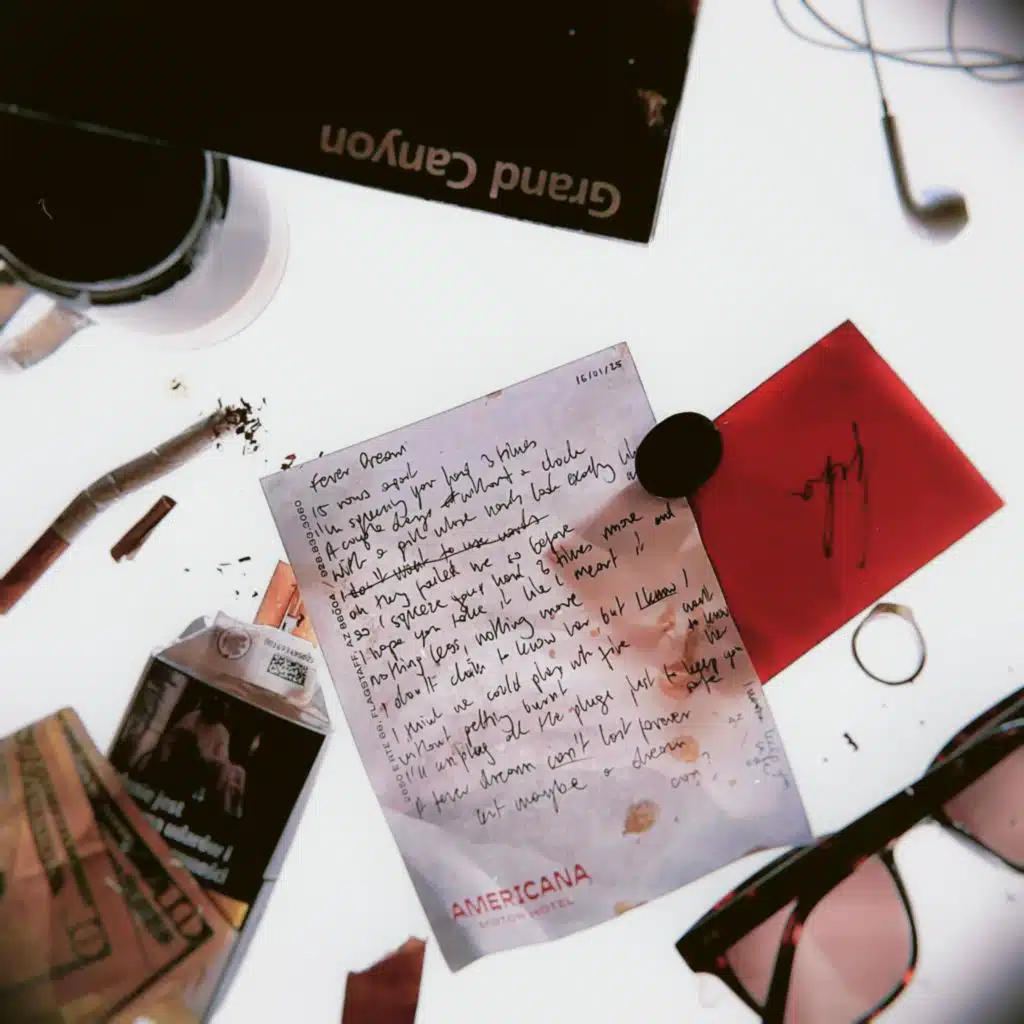 Grand Canyon
16/01/25
Fever Dream
15 hours apart
I'm squeezing you hand 3 times
A couple days without a clock
with a pill whose hands look exactly like
I don't want to use words
oh they failed me so before
so I squeeze your hand 3 times more and
I hope you take it like I meant it
nothing less, nothing more
I don't claim to know love but I know I want to know
I wish we could play with fire
without getting burnt
I'll unplug all the plugs just to keep you safe
A fever dream can't last forever
but maybe a dream can?
2650 RTE 66, FLAGSTAFF, AZ 86004 / 928.833.3060
AMERICANA
MOTOR HOTEL